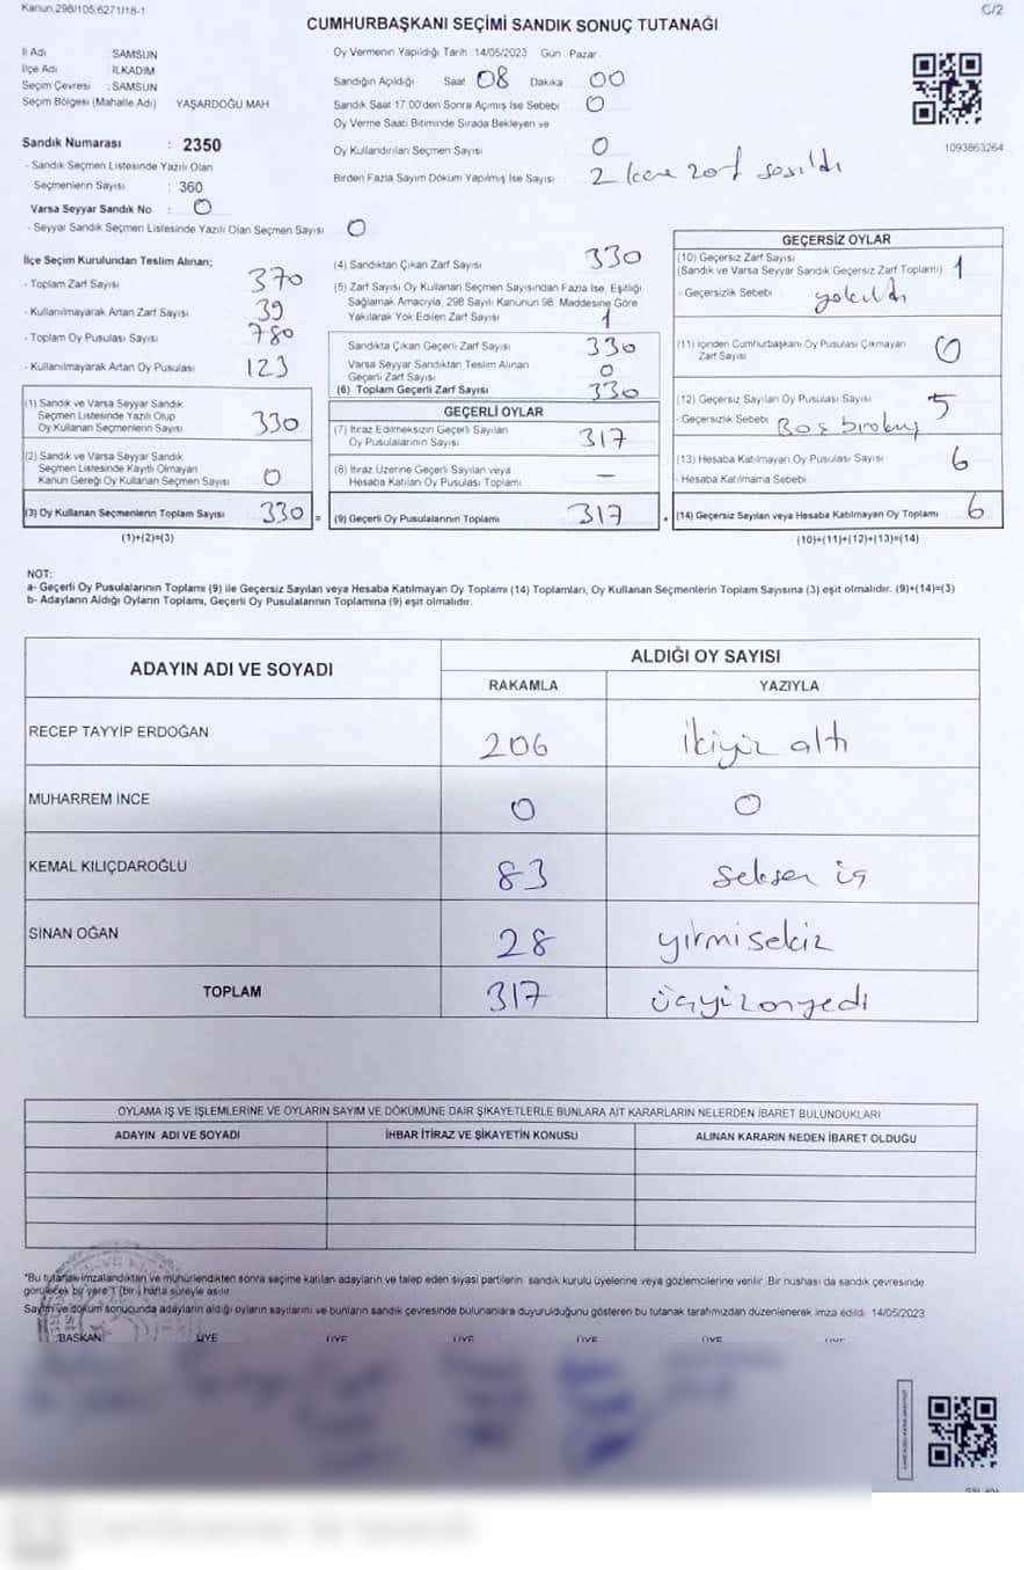 Kanun.298/105;6271/18-1
C/2
CUMHURBAŞKANI SEÇİMİ SANDIK SONUÇ TUTANAĞI
İl Adı SAMSUN
İlçe Adı İLKADIM
Seçim Çevresi : SAMSUN
Seçim Bölgesi (Mahalle Adı) YAŞARDOĞU MAH
Sandık Numarası : 2350
- Sandık Seçmen Listesinde Yazılı Olan
Seçmenlerin Sayısı : 360
Varsa Seyyar Sandık No : 0
- Seyyar Sandık Seçmen Listesinde Yazılı Olan Seçmen Sayısı 0
Oy Vermenin Yapıldığı Tarih 14/05/2023 Gün Pazar
Sandığın Açıldığı Saat 08 Dakika 00
Sandık Saat 17.00'den Sonra Açılmış İse Sebebi 0
Oy Verme Saati Bitiminde Sırada Bekleyen ve
Oy Kullandırılan Seçmen Sayısı 0
Birden Fazla Sayım Döküm Yapılmış İse Sayısı 2 kere zarf sayıldı
1093863264
İlçe Seçim Kurulundan Teslim Alınan;
- Toplam Zarf Sayısı 370
- Kullanılmayarak Artan Zarf Sayısı 39
- Toplam Oy Pusulası Sayısı 780
- Kullanılmayarak Artan Oy Pusulası 123
(1) Sandık ve Varsa Seyyar Sandık
Seçmen Listesinde Yazılı Olup
Oy Kullanan Seçmenlerin Sayısı 330
(2) Sandık ve Varsa Seyyar Sandık
Seçmen Listesinde Kayıtlı Olmayan
Kanun Gereği Oy Kullanan Seçmen Sayısı 0
(3) Oy Kullanan Seçmenlerin Toplam Sayısı 330 =
(1)+(2)=(3)
(4) Sandıktan Çıkan Zarf Sayısı 330
(5) Zarf Sayısı Oy Kullanan Seçmen Sayısından Fazla İse, Eşitliği
Sağlamak Amacıyla, 298 Sayılı Kanunun 98. Maddesine Göre
Yakılarak Yok Edilen Zarf Sayısı 1
Sandıkta Çıkan Geçerli Zarf Sayısı 330
Varsa Seyyar Sandıktan Teslim Alınan
Geçerli Zarf Sayısı 0
(6) Toplam Geçerli Zarf Sayısı 330
GEÇERLİ OYLAR
(7) İtiraz Edilmeksizin Geçerli Sayılan
Oy Pusulalarının Sayısı 317
(8) İtiraz Üzerine Geçerli Sayılan veya
Hesaba Katılan Oy Pusulası Toplamı —
(9) Geçerli Oy Pusulalarının Toplamı 317 +
GEÇERSİZ OYLAR
(10) Geçersiz Zarf Sayısı
(Sandık ve Varsa Seyyar Sandık Geçersiz Zarf Toplamı) 1
- Geçersizlik Sebebi yakıldı
(11) İçinden Cumhurbaşkanı Oy Pusulası Çıkmayan
Zarf Sayısı 0
(12) Geçersiz Sayılan Oy Pusulası Sayısı 5
- Geçersizlik Sebebi
(13) Hesaba Katılmayan Oy Pusulası Sayısı 6
- Hesaba Katılmama Sebebi
(14) Geçersiz Sayılan veya Hesaba Katılmayan Oy Toplamı 6
(10)+(11)+(12)+(13)=(14)
NOT:
a- Geçerli Oy Pusulalarının Toplamı (9) ile Geçersiz Sayılan veya Hesaba Katılmayan Oy Toplamı (14) Toplamları, Oy Kullanan Seçmenlerin Toplam Sayısına (3) eşit olmalıdır. (9)+(14)=(3)
b- Adayların Aldığı Oyların Toplamı, Geçerli Oy Pusulalarının Toplamına (9) eşit olmalıdır.
ADAYIN ADI VE SOYADI
ALDIĞI OY SAYISI
RAKAMLA YAZIYLA
RECEP TAYYİP ERDOĞAN 206 ikiyüz altı
MUHARREM İNCE 0 0
KEMAL KILIÇDAROĞLU 83 seksen üç
SİNAN OĞAN 28 yirmisekiz
TOPLAM 317 üçyüzonyedi
OYLAMA İŞ VE İŞLEMLERİNE VE OYLARIN SAYIM VE DÖKÜMÜNE DAİR ŞİKAYETLERLE BUNLARA AİT KARARLARIN NELERDEN İBARET BULUNDUKLARI
ADAYIN ADI VE SOYADI İHBAR İTİRAZ VE ŞİKAYETİN KONUSU ALINAN KARARIN NEDEN İBARET OLDUĞU
*Bu tutanak imzalandıktan ve mühürlendikten sonra seçime katılan adayların ve talep eden siyasi partilerin sandık kurulu üyelerine veya gözlemcilerine verilir. Bir nüshası da sandık çevresinde
görülecek bir yere 1 (bir) hafta süreyle asılır.
Sayım ve döküm sonucunda adayların aldığı oyların sayılarını ve bunların sandık çevresinde bulunanlara duyurulduğunu gösteren bu tutanak tarafımızdan düzenlenerek imza edildi. 14/05/2023
BAŞKAN ÜYE ÜYE ÜYE ÜYE ÜYE